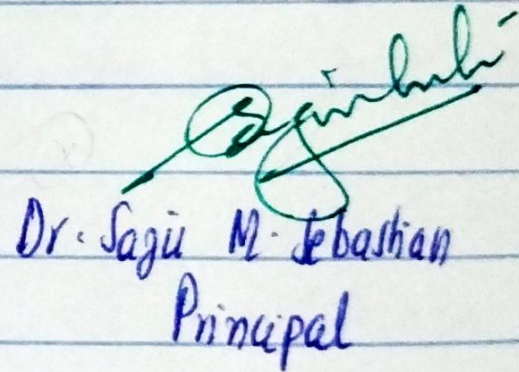 Dr. Sagii M. Sebastian
Principal